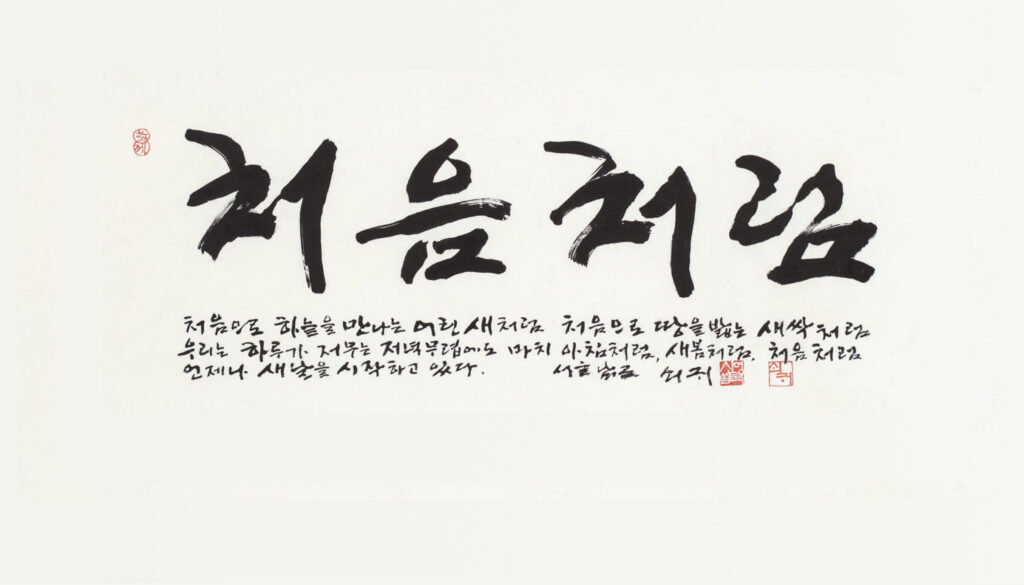 처음처럼
처음으로 하늘을 만나는 어린 새처럼 처음으로 땅을 밟는 새싹처럼
우리는 하루가 저무는 저녁무렵에도 마치 아침처럼, 새봄처럼, 처음처럼
언제나 새날을 시작하고 있다.
쇠귀